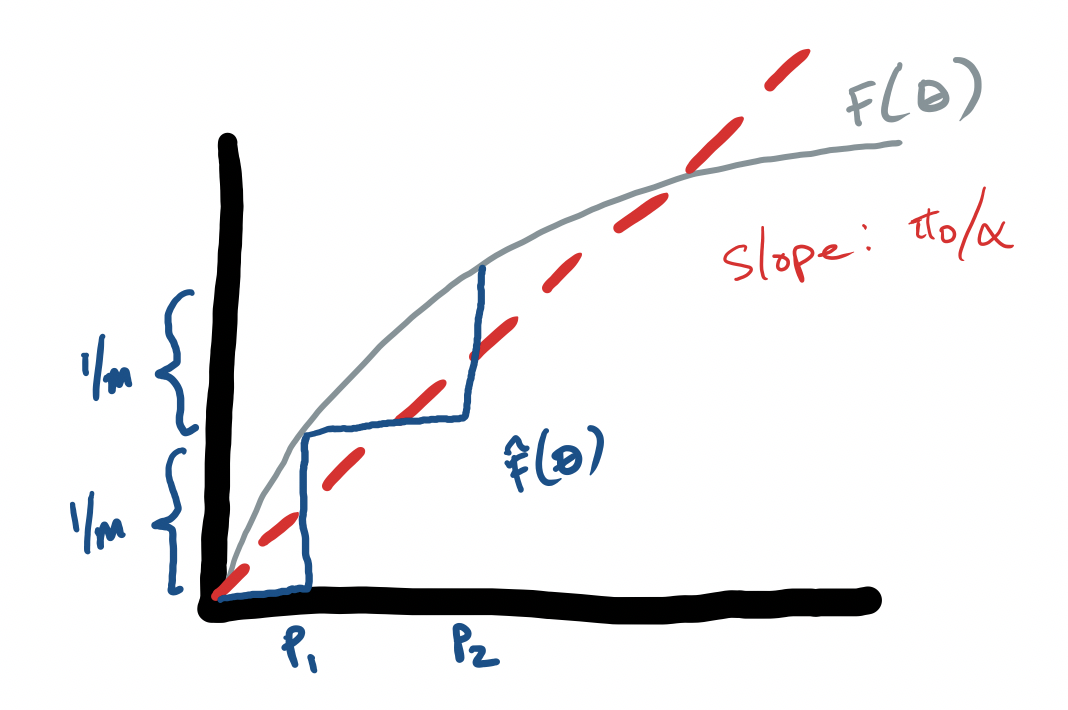 F(θ)
slope: π₀/α
1/m
F̂(θ)
1/m
P₁
P₂